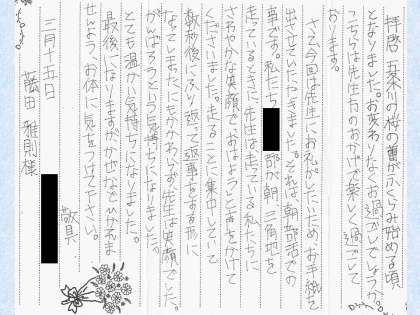 拝啓 五条川の桜の蕾がふくらみ始める頃
となりました。お変わりなくお過ごしでしょうか。
こちらは先生方のおかげで楽しく過ごして
おります。
さて、今回は先生にお礼がしたいため、お手紙を
出させていただきました。それは、朝の部活での
事です。私たち 部が朝、三角地を
走っているときに、先生は走っている私たちに
さわやかな笑顔で「おはよう」と声をかけて
くださいました。走ることに集中していて
数秒後にふり返って返事をする形に
なってしまったにもかかわらず、先生は笑顔でした。
がんばろうという気持ちになりました。
とても温かい気持ちになりました。
最後になりますが、かぜなどひかぬま
せんよう、お体に気をつけて下さい。
敬具
三月十五日
藤田 雅則様